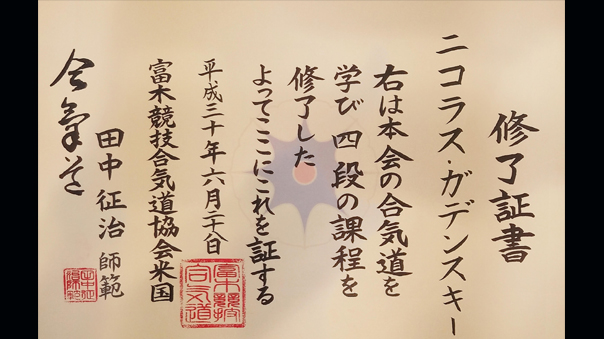 修了証書
ニコラス・ガデンスキー
右は本会の合気道を
学び 四 段の課程を
修了した
よってここにこれを証する
平成三十年六月二十日
富木競技合気道協会米国
富木競技
合気道
田中征治 師範
合氣道